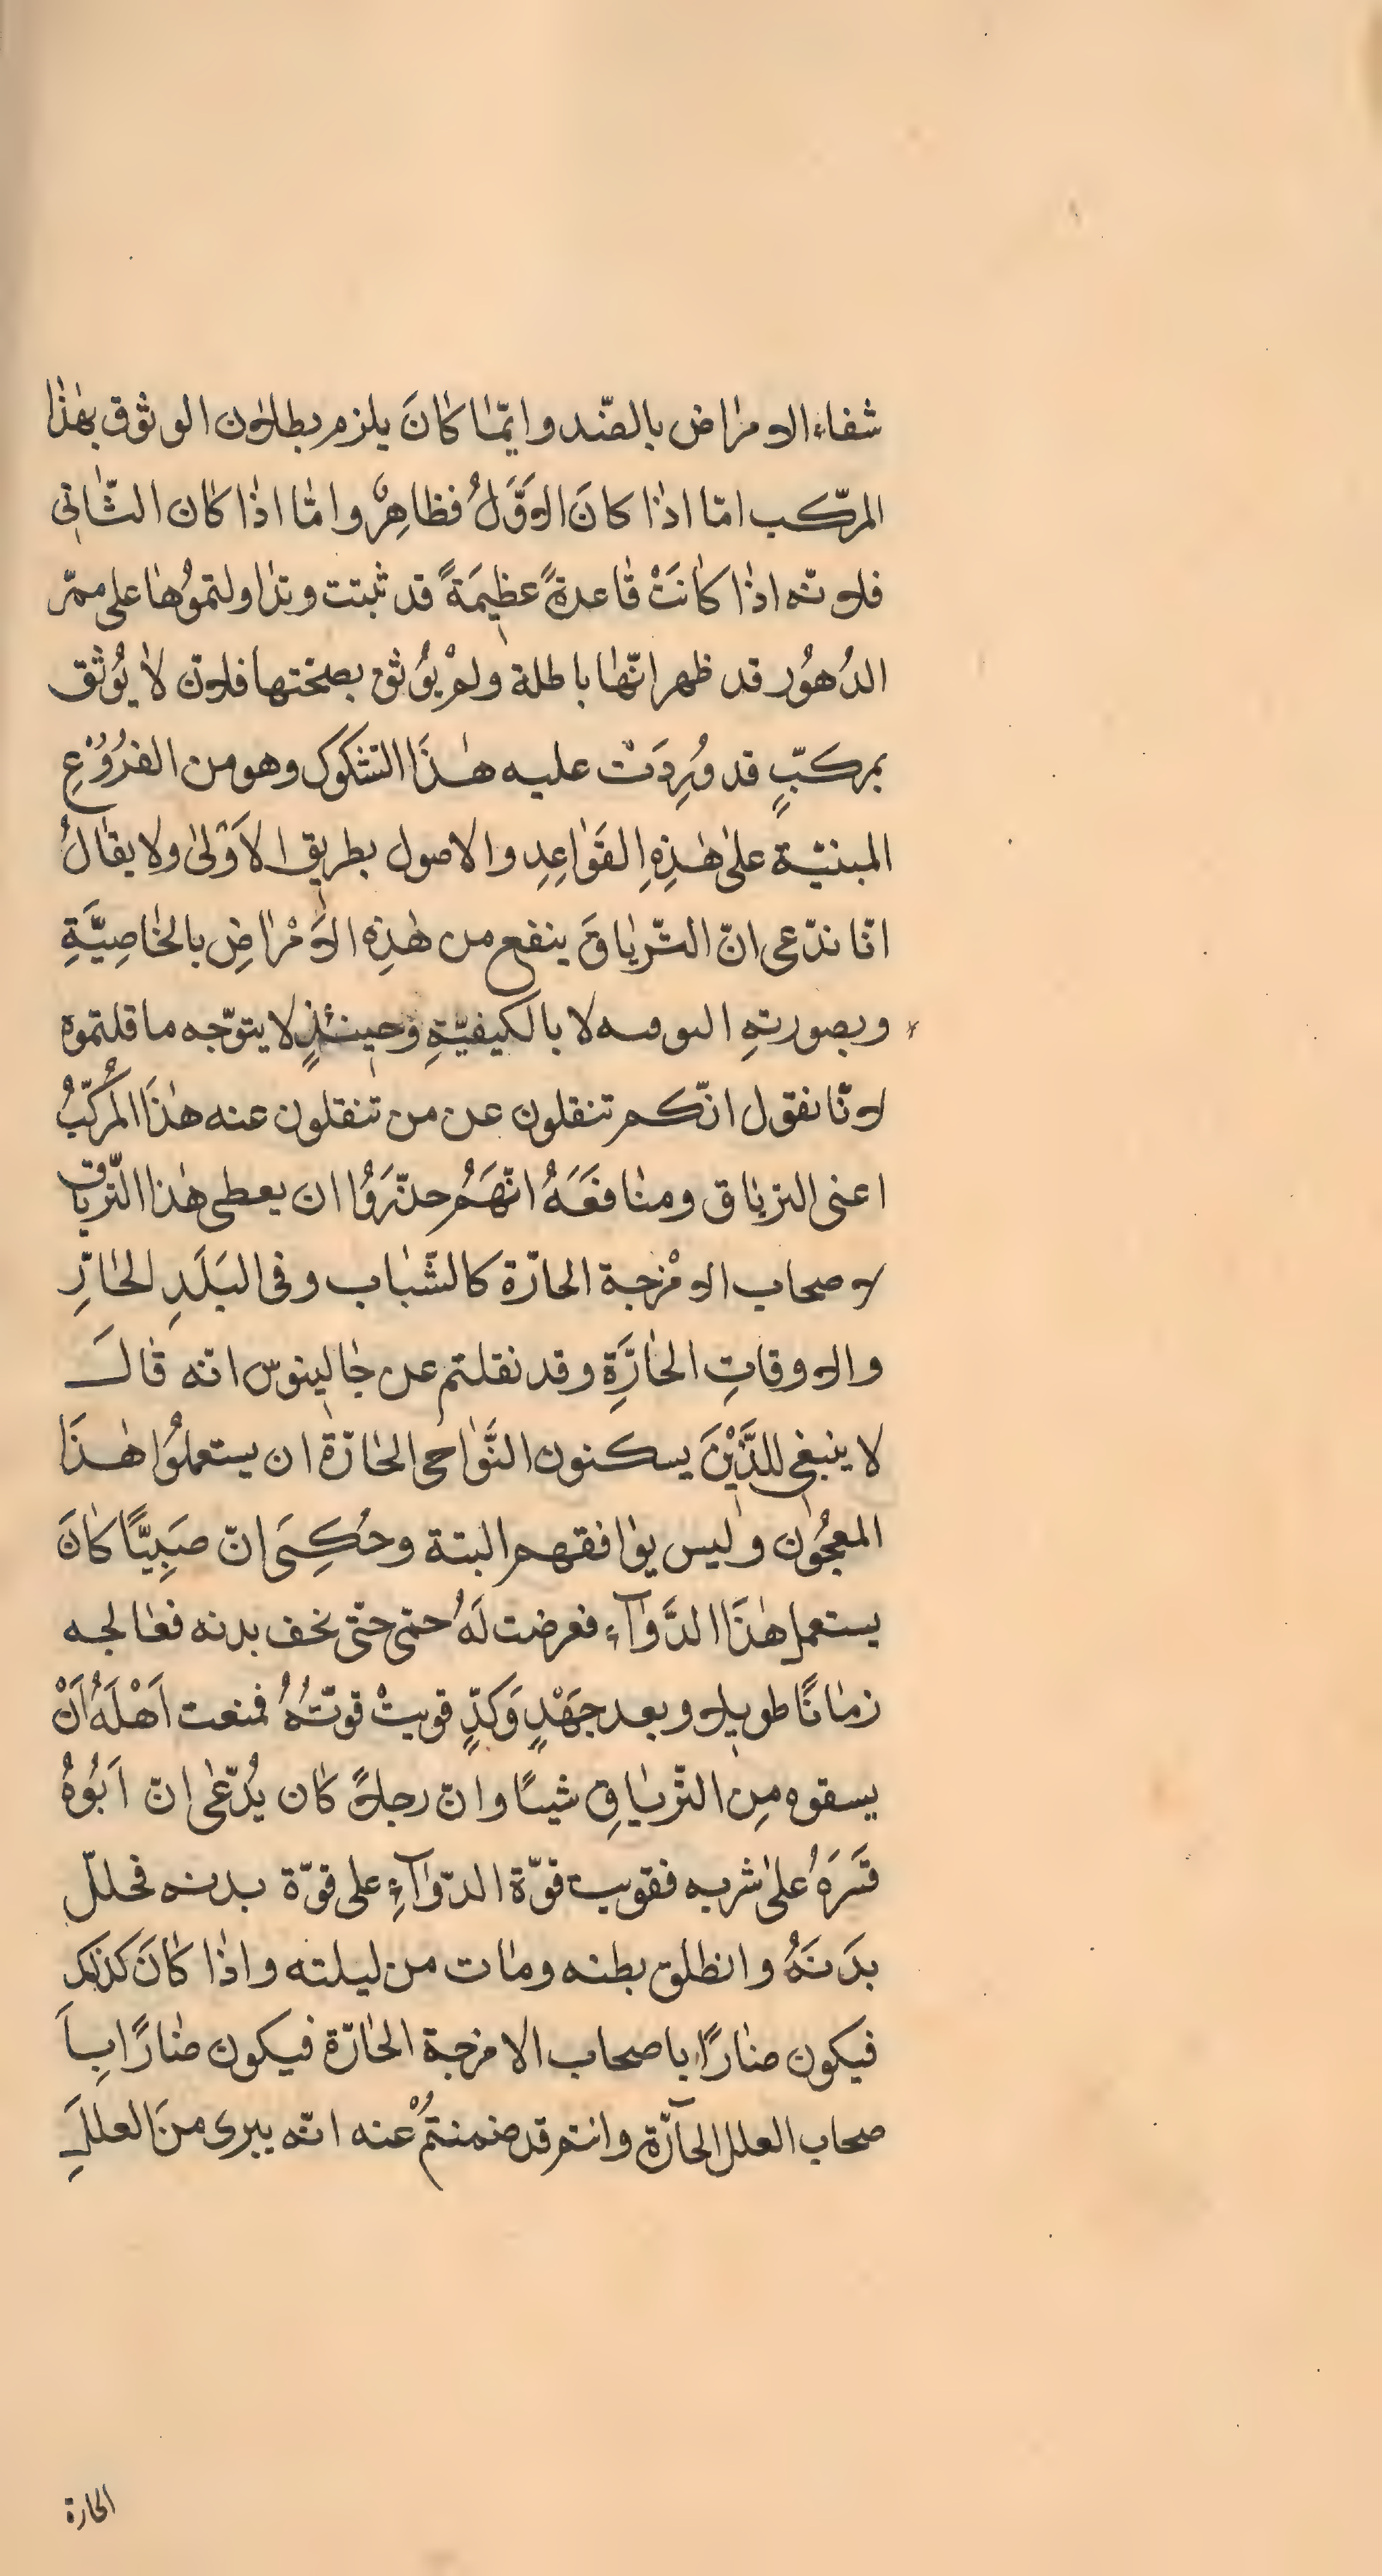 شفاء الامراض بالضّد وايّما كانَ يلزم بطلان الوثوق بهٰذا
المركّب امّا اذا كانَ الاوَّلُ فظاهِرٌ وامّا اذا كان الثّاني
فلانّه اذا كانَتْ قاعدةً عظيمَةً قد ثبتت وتداولتموُها على ممرّ
الدُهوُر قد ظهر انّها باطلة ولمْ يوُثق بصحّتها فلان لا يُوثق
بمركّبٍ قد وُرِدَتْ عليه هٰذَا الشكوك وهو من الفُرُوْعِ
المبنيّة علىٰ هٰذِهِ القَوٰاعِدِ والاصول بطريق الاَوْلىٰ ولا يقالُ
انّا ندّعى انّ التّرياقَ ينفع من هٰذِه الاَمْرٰاضِ بالخاصِيَّةِ
وبصورتهِ لا بالكيفيّةِ وحينئذٍ لا يتوّجه ما قلتموه
لانّا نقول انّكم تنقلون عن من تنقلون عنه هٰذَا المُركّبُ
اعنى الترياق ومنافعَهُ انّهَمُ حذّرَوُا ان يعطى هٰذا التّرياق
لاصحاب الامْزجة الحارّة كالشّباب وفى البَلَدِ الحٰارِّ
والاوقاتِ الحٰارَّةِ وقد نقلتم عن جٰالينوس انّه قٰالَ
لا ينبغى للَّذَيْنَ يسكنون النَّوٰاحى الحٰارّة ان يستعملوُا هٰذَا
المعجُون وليس يوٰافقهم البتة وحُكِىَ انّ صَبِيّاً كانَ
يستعمل هٰذَا الدَّوٰآءِ فعرضت لَهُ حمّى حتّى نحف بدنه فعٰالجه
زمٰانًا طويلا وبعد جَهْدٍ وَكدٍّ قويتْ قوّتُهُ فمنعت اَهْلَهُ اَنْ
يسقوه مِن التّريٰاقِ شيئًا وانّ رجلاً كان يُدّعٰى انّ اَبُوهُ
قَسَرَهُ علىٰ شربه فقويت قوّة الدّوٰآءِ على قوّة بدنه فحلّل
بدَنَهُ وانطلق بطنه ومٰات من ليلته واذٰا كٰانَ كذلك
فيكون ضٰارًا باصحاب الامزجة الحٰارّة فيكون ضٰارًا باَ
صحاب العلل الحآرّة وانتم قد ضمنتُمْ عنه انّه يبرى منَ العللِ
الحارة